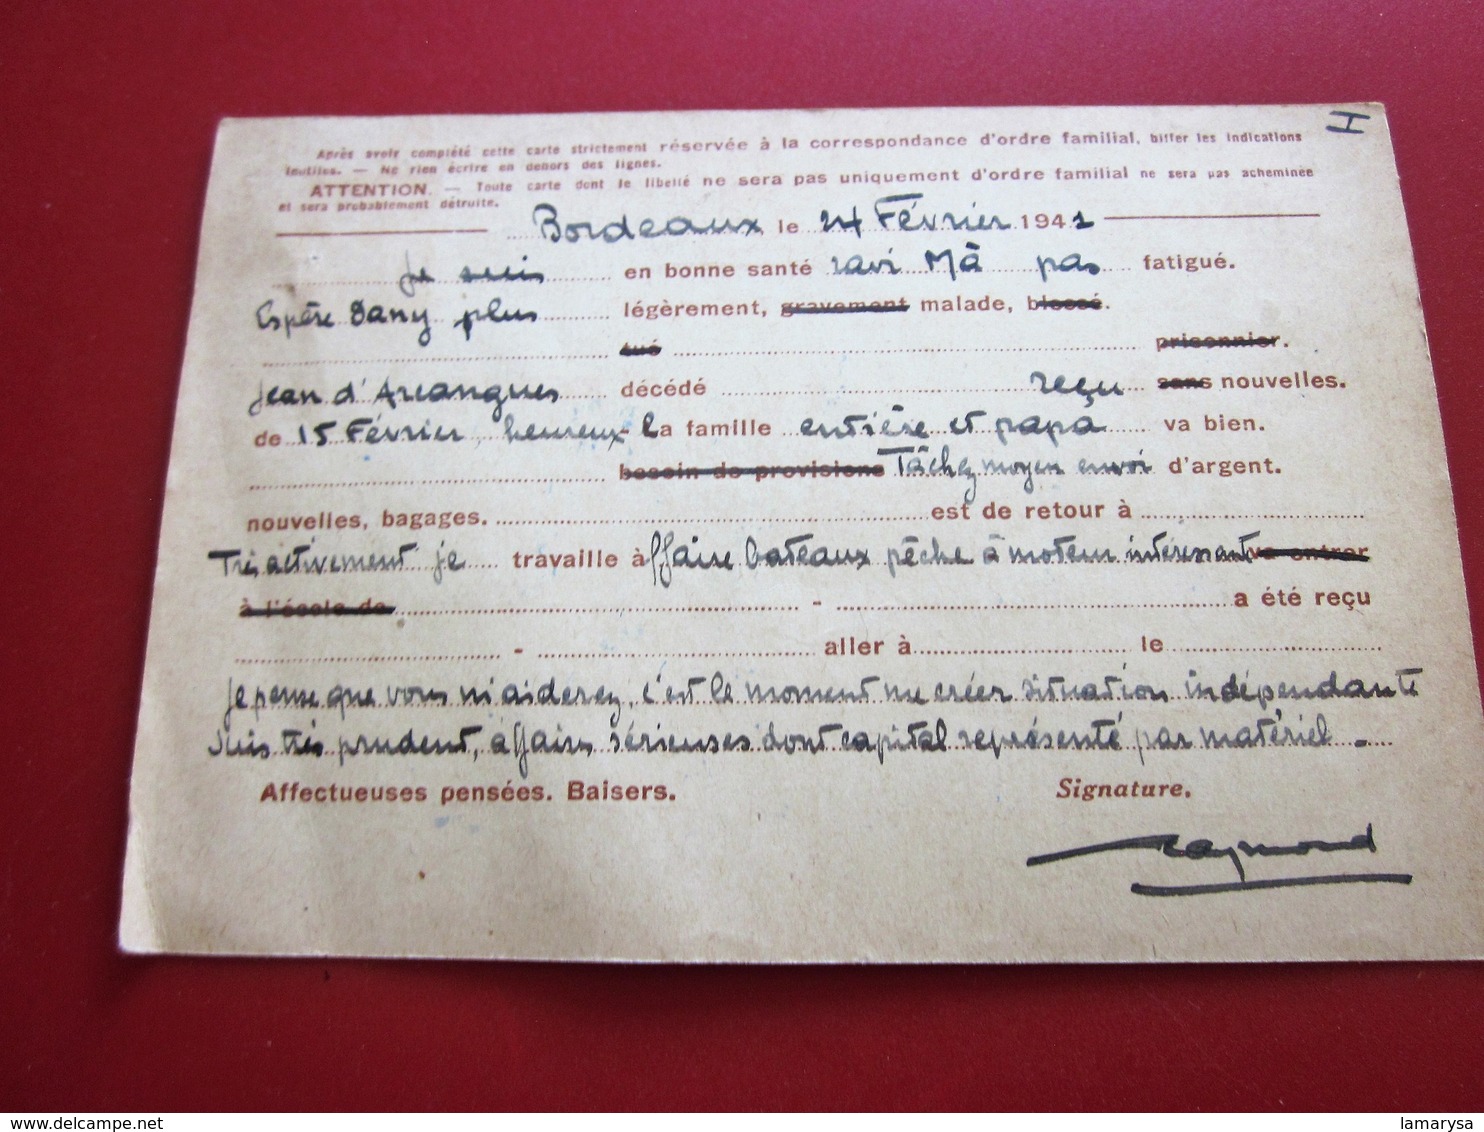 I
Après avoir complété cette carte strictement réservée à la correspondance d'ordre familial, biffer les indications
inutiles. — Ne rien écrire en dehors des lignes.
ATTENTION. — Toute carte dont le libellé ne sera pas uniquement d'ordre familial ne sera pas acheminée
et sera probablement détruite.
Bordeaux, le 24 Février 1941
Je suis en bonne santé ravi Mà pas fatigué.
Espère Dany plus légèrement, gravement malade, blessé.
tué prisonnier.
Jean d'Arcangues décédé reçu sans nouvelles.
de 15 Février, heureux La famille entière et papa va bien.
besoin de provisions Tâchez moyen envoi d'argent.
nouvelles, bagages. est de retour à
Très activement je travaille à affaire bateaux pêche à moteur intéressant va entrer
à l'école de - a été reçu
- aller à le
Je pense que vous m'aiderez, c'est le moment me créer situation indépendante
Suis très prudent, affaires sérieuses dont capital représenté par matériel -
Affectueuses pensées. Baisers. Signature.
Raymond
delcampe.net
lamarysa